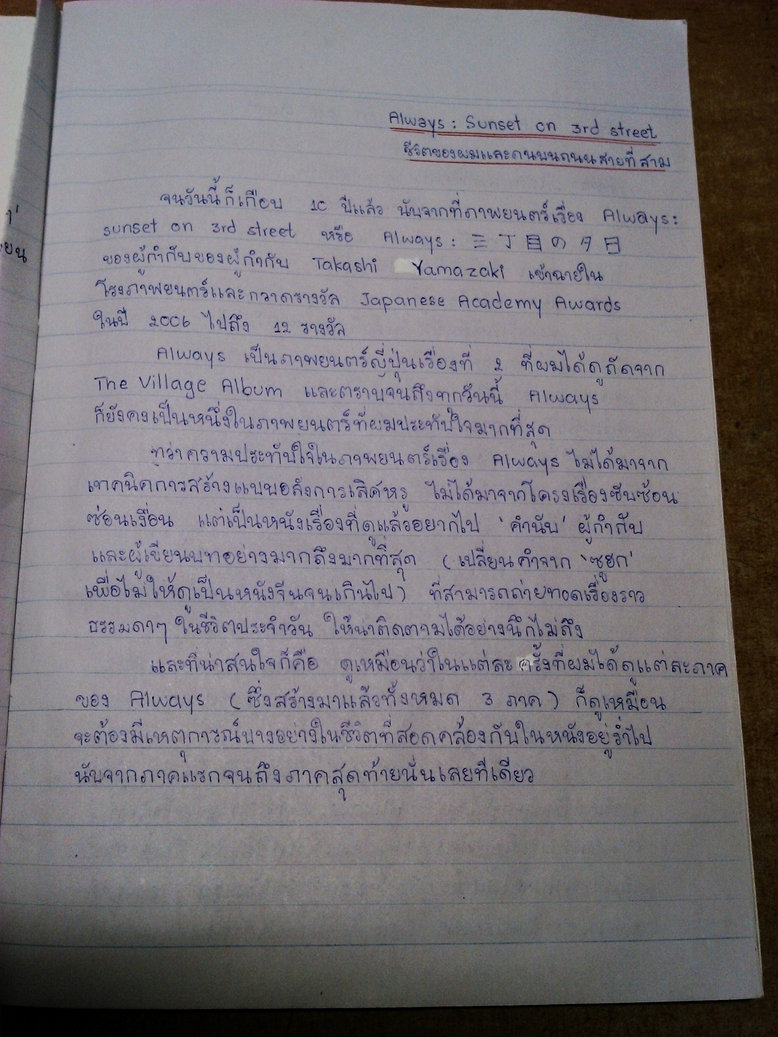 Always : Sunset on 3rd street
ชีวิตของผมและถนนบนถนนสายที่สาม
จนวันนี้ก็เกือบ 10 ปีแล้ว นับจากที่ภาพยนตร์เรื่อง Always:
sunset on 3rd street หรือ Always : 三丁目の夕日
ของผู้กำกับของผู้กำกับ Takashi Yamazaki เข้าฉายใน
โรงภาพยนตร์และกวาดรางวัล Japanese Academy Awards
ในปี 2006 ไปถึง 12 รางวัล
Always เป็นภาพยนตร์ญี่ปุ่นเรื่องที่ 2 ที่ผมได้ดูถัดจาก
The Village Album และตราบจนถึงทุกวันนี้ Always
ก็ยังคงเป็นหนึ่งในภาพยนตร์ที่ผมประทับใจมากที่สุด
ทว่าความประทับใจในภาพยนตร์เรื่อง Always ไม่ได้มาจาก
เทคนิคการสร้างแบบอลังการเลิศหรู ไม่ได้มาจากโครงเรื่องซับซ้อน
ซ่อนเงื่อน แต่เป็นหนังเรื่องที่ดูแล้วอยากไป 'คำนับ' ผู้กำกับ
และผู้เขียนบทอย่างมากถึงมากที่สุด (เปลี่ยนคำจาก 'ซูฮก'
เพื่อไม่ให้ดูเป็นหนังจีนจนเกินไป) ที่สามารถถ่ายทอดเรื่องราว
ธรรมดาๆ ในชีวิตประจำวัน ให้น่าติดตามได้อย่างนึกไม่ถึง
และที่น่าสนใจก็คือ ดูเหมือนว่าในแต่ละครั้งที่ผมได้ดูแต่ละภาค
ของ Always (ซึ่งสร้างมาแล้วทั้งหมด 3 ภาค) ก็ดูเหมือน
จะต้องมีเหตุการณ์บางอย่างในชีวิตที่สอดคล้องกับในหนังอยู่ร่ำไป
นับจากภาคแรกจนถึงภาคสุดท้ายนั่นเลยทีเดียว